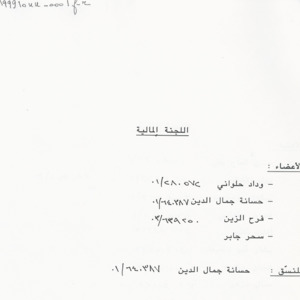 اللجنة المالية
الأعضاء :
- وداد حلواني ٠١/٢٨٠٥٧٢
- حسانة جمال الدين ٠١/٦٤٠٣٨٧
- فرح الزين ٠٣/٦٣٩٢٥٠
- سحر جابر
المنسّق : حسانة جمال الدين ٠١/٦٤٠٣٨٧